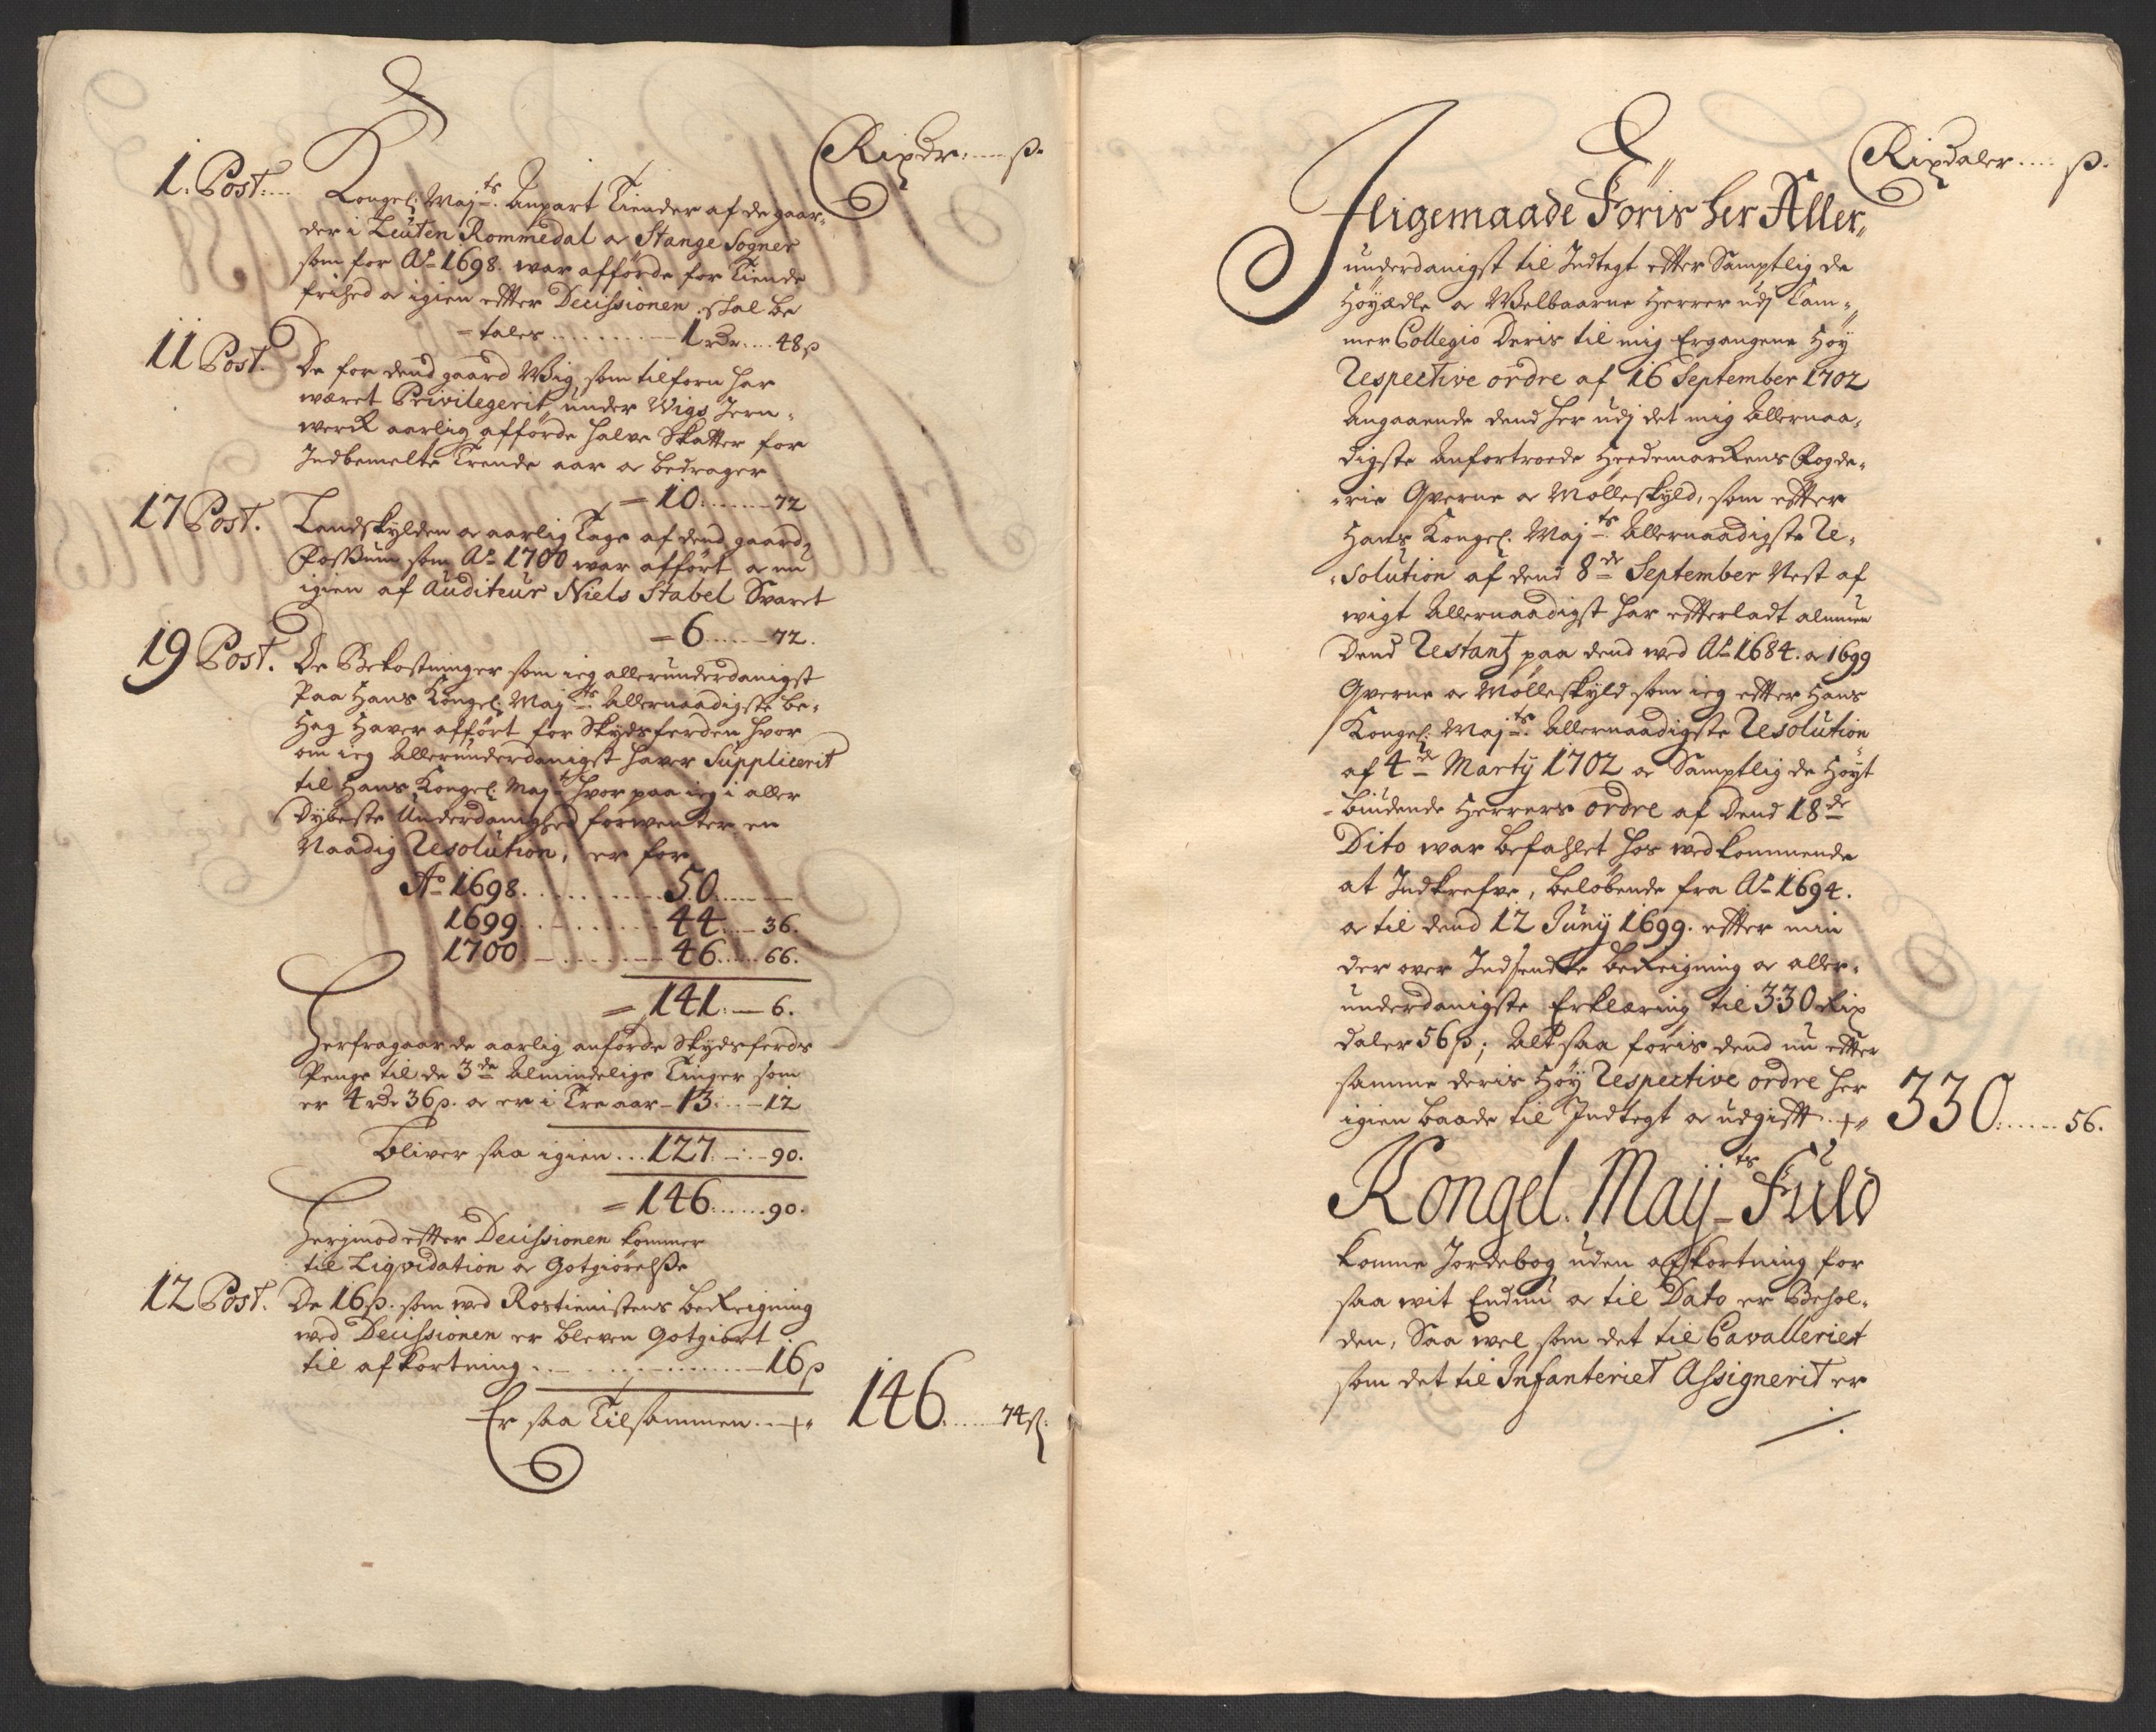 Rixdr. .... ß.
1. Post. ... Kongel: Maj:ts Anpart Tiender af de gaar,
der i Leuten Rommedal oc Stange Sogner
som for A:o 1698. war afførde for Tiende
frihed oc igien effter Decissionen skal be
=tales .......... 1 rdr .... 48 ß
11 Post. De for dend gaard Wiig som tilforn har
wæret Privilegerit under Wigs Jern,
werck aarlig afførde halve Skatter for
Indbemelte Trende aar oc bedrager
= 10 ....... 72
17 Post. Landskylden oc aarlig Tage af dend gaard
Fossum som A:o 1700 war afført oc nu
igien af Auditeur Niels Stabel Svaret
= 6 ...... 72.
19 Post. De Bekostninger som ieg allerunderdanigst
Paa Hans Kongel: Maj:ts Allernaadigste be,
Hag Haver afført for Skydsferden hvor
om ieg Allerunderdanigst haver Supplicerit
til Hans Kongel: Maj:t hvor paa ieg i aller
Dybeste Underdanighed forwenter en
Naadig Resolution, er for
A:o 1698. .......... 50. ....
1699. ......... 44. ... 36.
1700. ......... 46. .... 66.
= 141: — 6.
Herfragaar de aarlig anførde Skydsferds
Penge til de 3de Almindelige Tinger som
er 4 rdr 36 ß. oc er i Tre aar – 13: .. – 12
Bliver saa igien ... 127. – : – 90.
= 146. ..... 90.
Herimod effter Decissionen kommer
til Liqvidation oc Gotgiørelsse
12 Post. De 16 ß. som wed Rostienistens beReigning
wed Decissionen er bleven Gotgiort
til afkortning .............. 16 ß
Er saa Tilsammen .. –+" 146. ..... 74 ß.
Rixdaler .... ß.
Iligemaade Føris her Aller,,
underdanigst til Indtegt effter Samptlig de
Høyædle oc Welbaarne Herrer udj Cam,,
mer Collegio Deris til mig Ergangene Høy
Respective ordre af 16 September 1702
Angaaende dend her udj det mig Allernaa,
digste Anfortroede Hedemarckens Fogde,
,rie Qverne oc Mølleskyld, som effter
Hans Kongel. Maj:ts Allernaadigste Re,
,solution af dend 8de September Nest af
wigt Allernaadigst har efterladt almuen
Dend Restantz paa dend wed A:o 1684. oc 1699
Qverne oc Mølleskyld som ieg effter Hans
Kongel: Maj:ts Allernaadigste Resolution
af 4de Martÿ 1702 oc Samptlig de Høyt
biudende Herrers ordre af Dend 18de
Dito war befahlet hos wedkommende
at Indkrefve, beløbende fra A:o 1694.
oc til dend 12 Junÿ 1699. effter min
der over Indsendte beReigning oc aller,
underdanigste Erklæring til 330 Rix
daler 56 ß; Altsaa føris dend nu effter
samme deris Høy Respective ordre her
igien baade til Indtegt oc udgifft .. +" 330. ..... 56.
Kongel. Maÿ:ts Fuld
komne Jordebog uden afkortning for
saa wit Endnu oc til Dato er Behol,
den, Saa wel som det til Cavalleriet
som det til Infanteriet Assignerit er